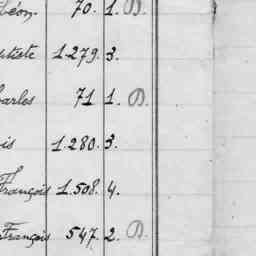 béon. 70. 1. D.
ptiste 1.279. 3.
harles 71 1. D.
is 1.280. 3.
François 1.508. 4.
François 547. 2. D.